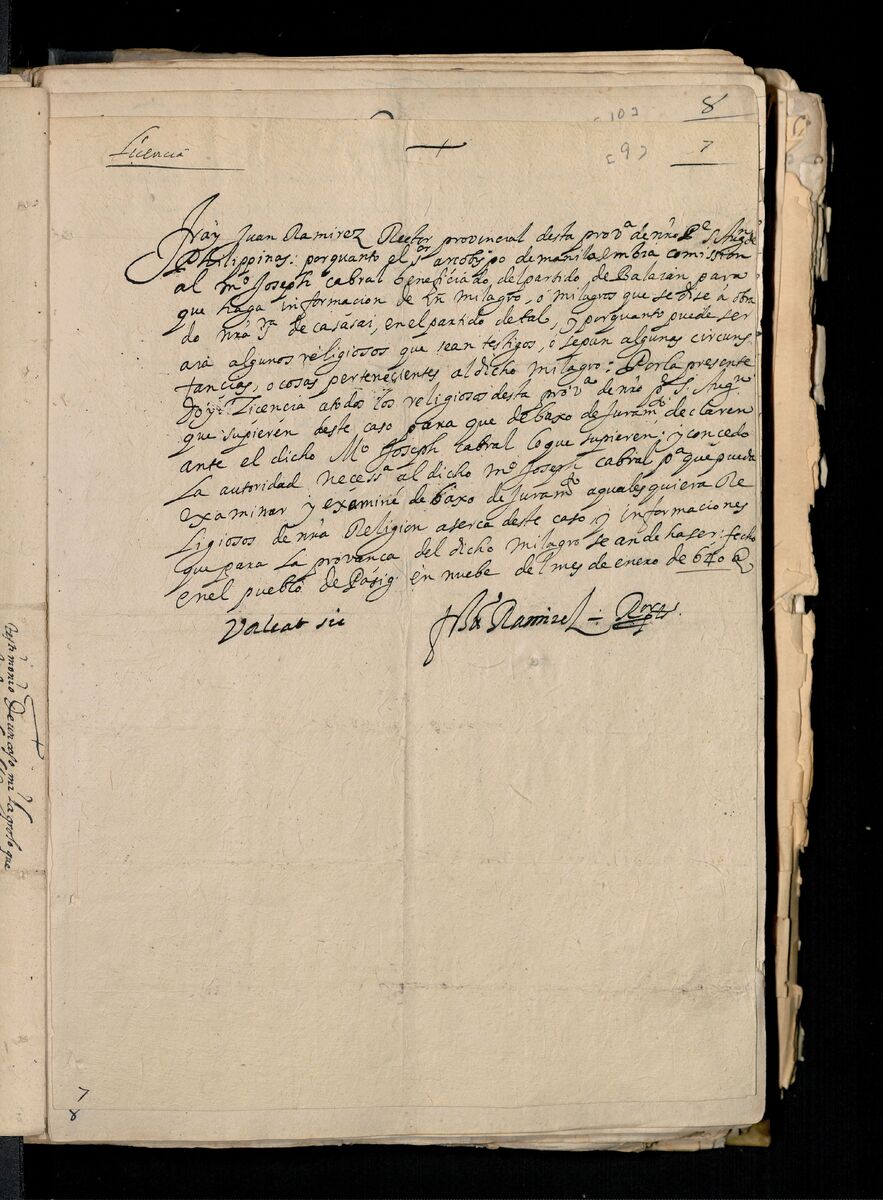 8
[10]
Licencia
+
[9]
7
Fray Juan Ramirez Rector provincial desta prov.ª de nrō P.e S. Aug.n de
Philippinas: porquanto el s.or arcobispo de manila embia comission
al M.o Joseph Cabral beneficiado, del partido de Balaian para
que haga informacion de un milagro, o milagros que se dise a obra
do nrā S.ra de casasai, en el partido de tal, y porquanto puede ser
aia algunos religiosos que sean testigos, o sepan algunas circuns
tancias, o cosas pertenecientes al dicho milagro: Por la presente
doy Licencia a todos los religiosos desta prov.ª de nrō P.e S. Aug.n
que supieren deste caso para que debaxo de Juram.to declaren
ante el dicho M.o Joseph Cabral lo que supieren; y concedo
la autoridad necess.ª al dicho M.o Joseph Cabral p.ª que pueda
examinar y examine debaxo de Juram.to a qualesquiera Re
ligiosos de nrā Religion aserca deste caso, y informaciones
que para la provanca del dicho milagro se an de haser: fecho
en el pueblo de Pasig en nuebe del mes de enero de 640 a.
Valeat sic
fr Ju.o Ramirez
+
testimonio de un caso milagroso que
7
8